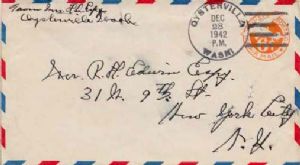 Oysterville Wash
OYSTERVILLE
DEC
28
1942
P.M.
WASH.
Mr. R. H. Edwin Espy
31 W. 9th St.
New York City
N.Y.